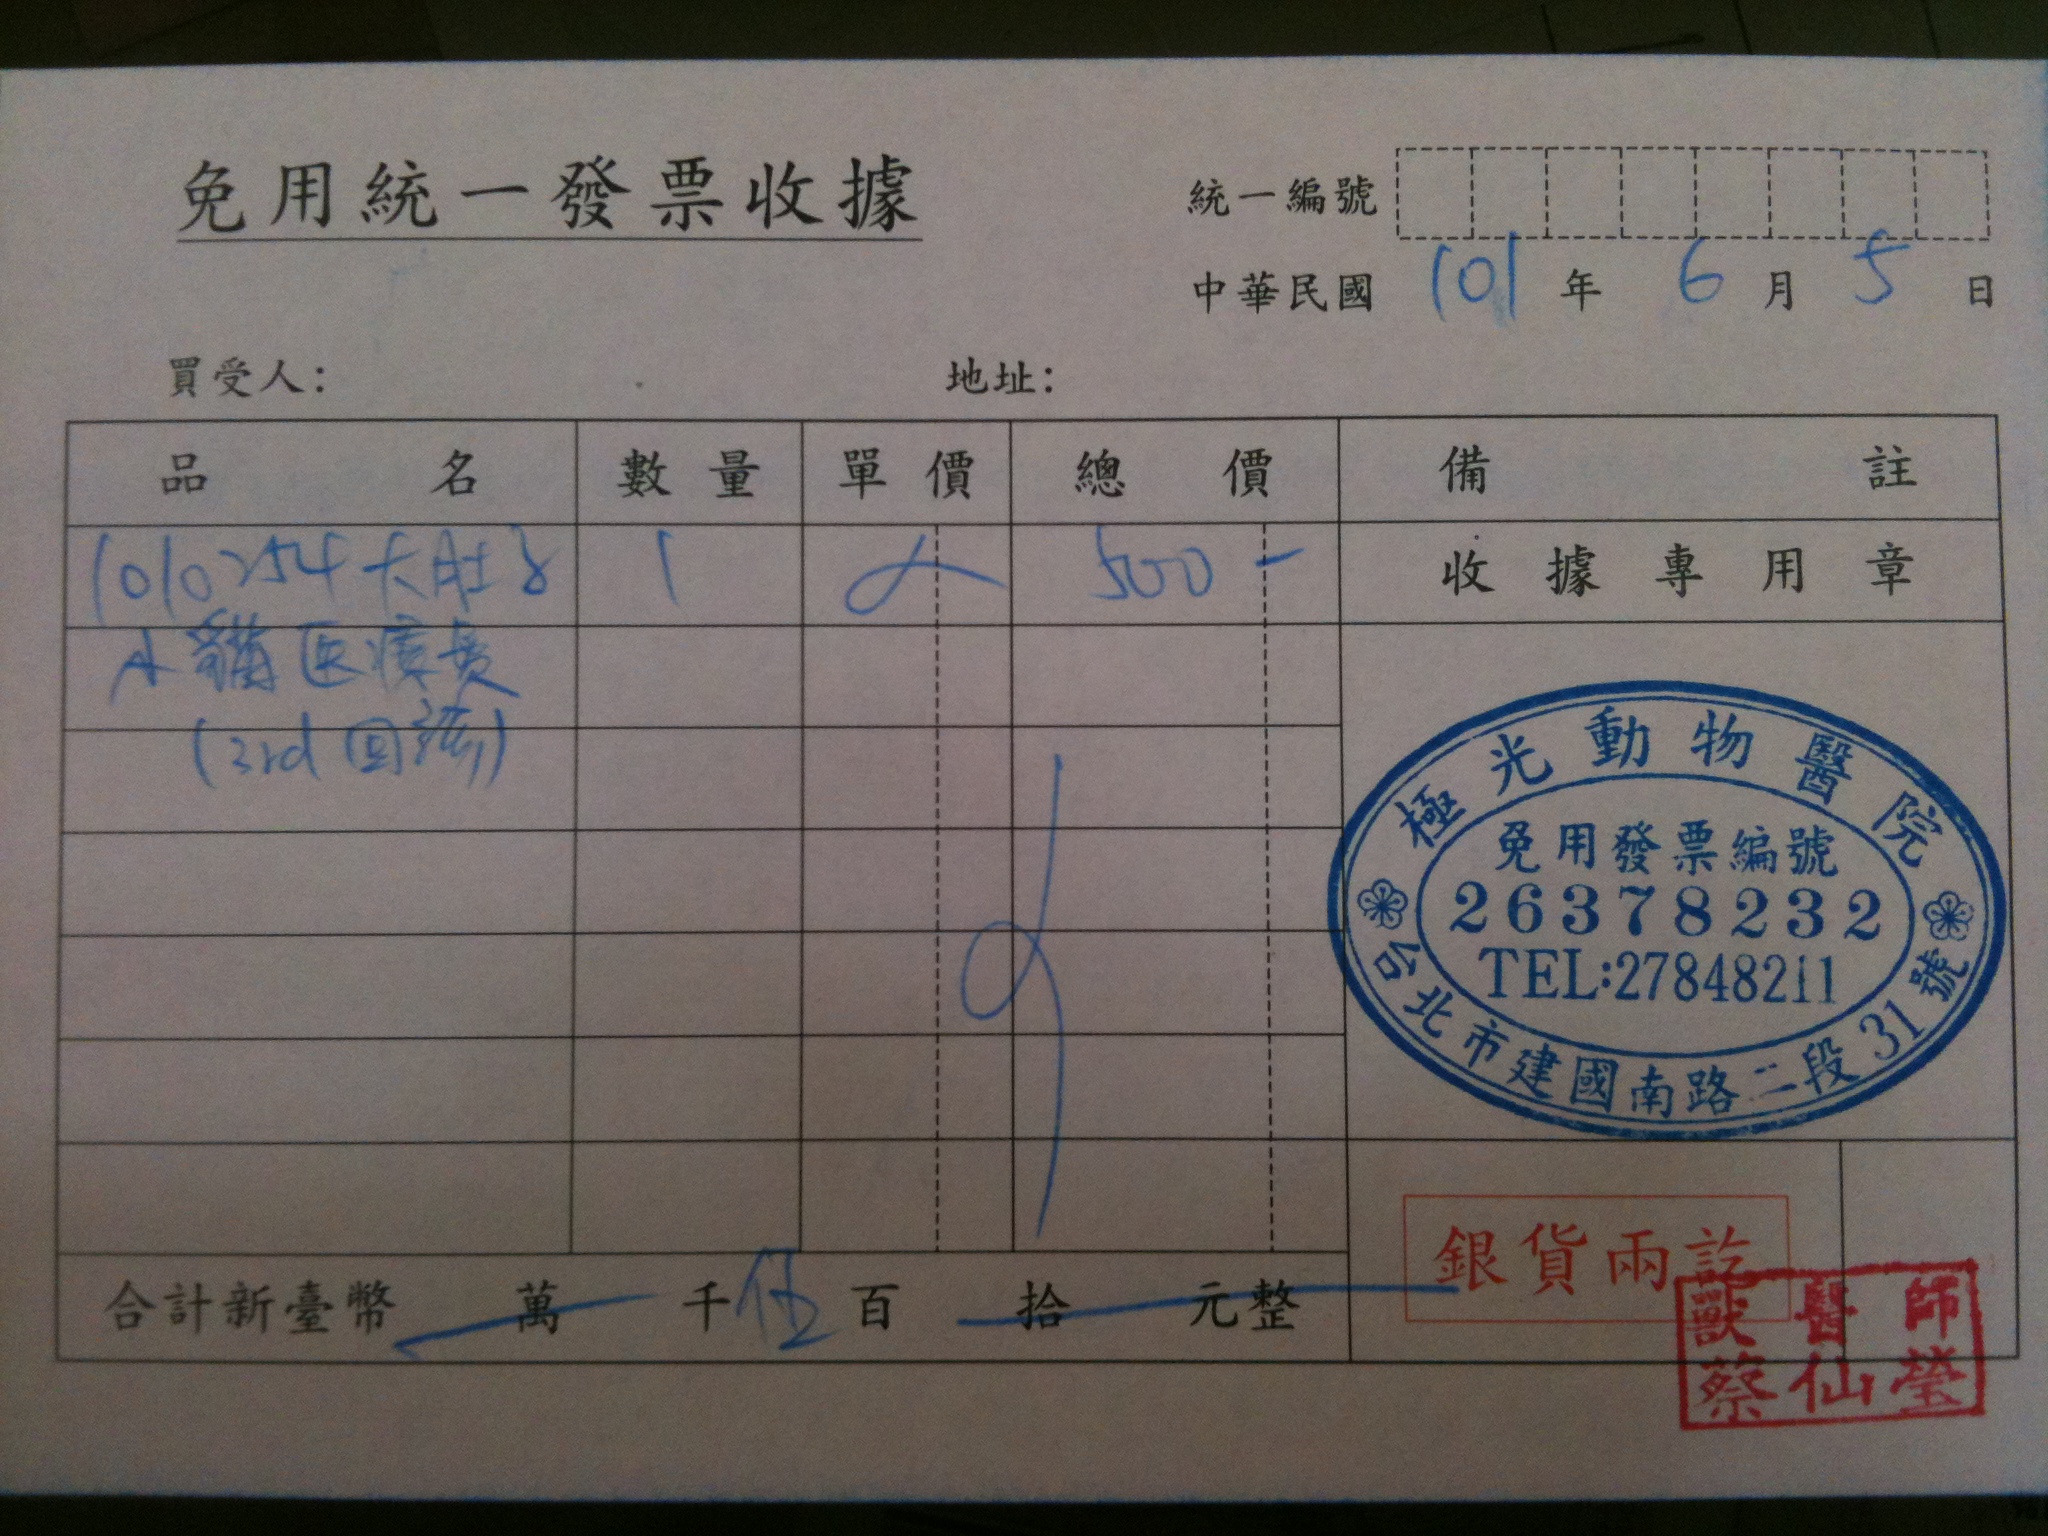 免用統一發票收據
統一編號
中華民國 101 年 6 月 5 日
買受人: 地址:
品名 數量 單價 總價 備註
1010254大肚子 1 500- 收據專用章
小貓医療費
(3rd 回診)
極光動物醫院
免用發票編號
26378232
TEL:27848211
台北市建國南路二段31號
銀貨兩訖
合計新臺幣 萬 千 伍 百 拾 元整
獸醫師
蔡仙瑩